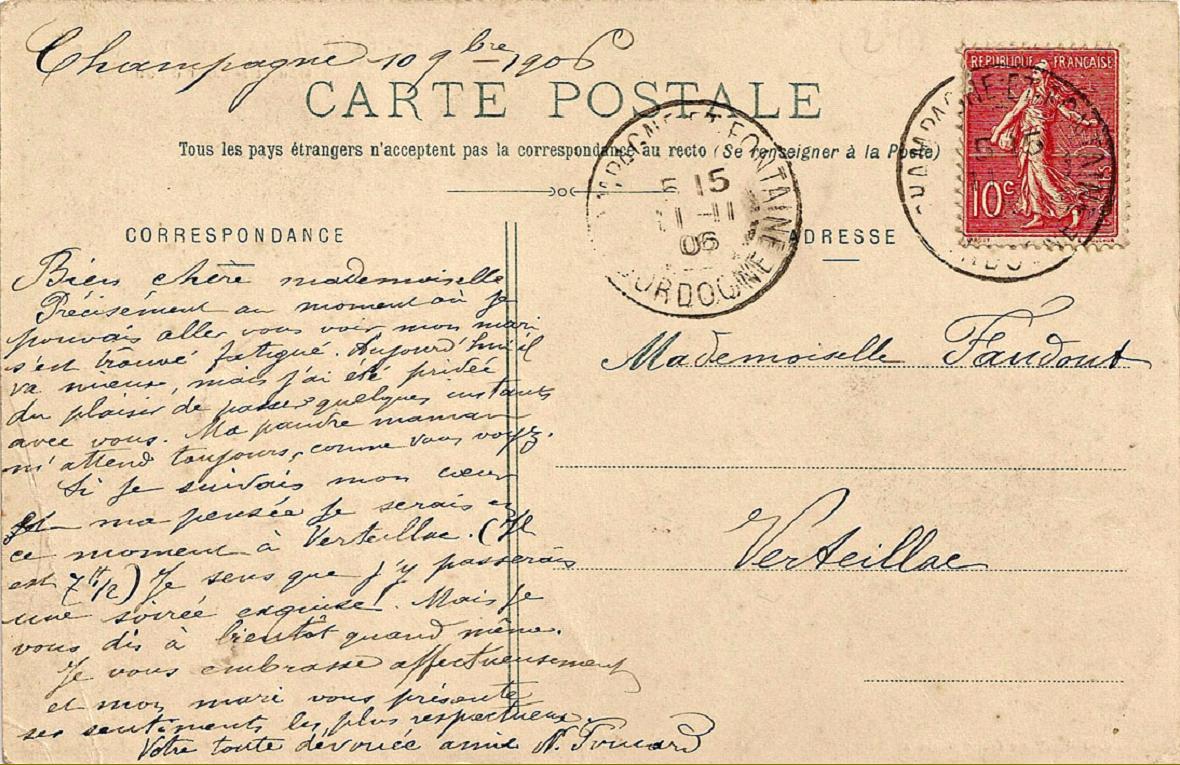 Champagne 10 9bre 1906
CARTE POSTALE
Tous les pays étrangers n'acceptent pas la correspondance au recto (Se renseigner à la Poste)
RÉPUBLIQUE FRANÇAISE
10c
CHAMPAGNE-ET-FONTAINE
5 15
11 -11
06
DORDOGNE
CORRESPONDANCE
ADRESSE
Bien chère mademoiselle
Précisément au moment où je
pouvais aller vous voir mon mari
s'est trouvé fatigué. Aujourd'hui il
va mieux, mais j'ai été privée
du plaisir de passer quelques instants
avec vous. Ma pauvre maman
m'attend toujours, comme vous voyez.
Si je suivais mon cœur
et ma pensée je serais en
ce moment à Verteillac. (Il
est 7h 1/2) Je sens que j'y passerais
une soirée exquise! Mais je
vous dis à bientôt quand même.
Je vous embrasse affectueusement
et mon mari vous présente
ses sentiments les plus respectueux.
Votre toute dévouée amie N.
Mademoiselle Faudout
Verteillac